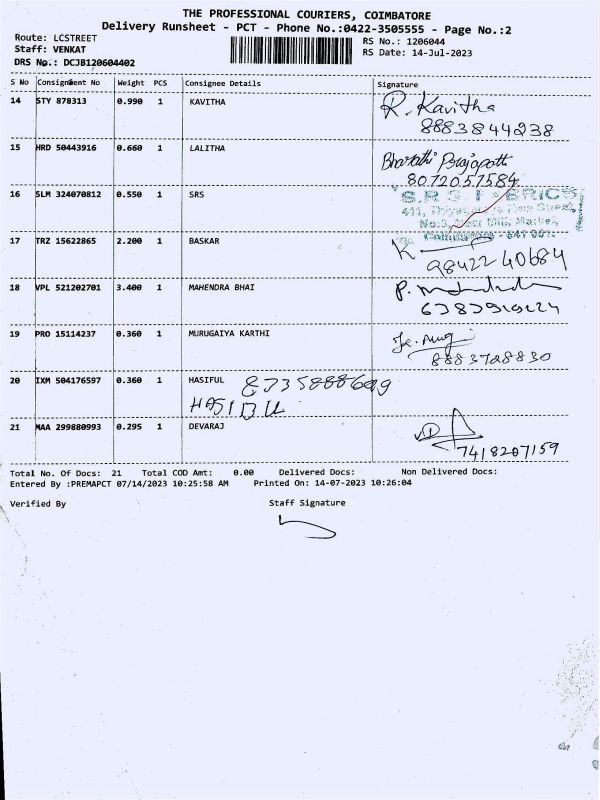 THE PROFESSIONAL COURIERS, COIMBATORE
Delivery Runsheet - PCT - Phone No.:0422-3505555 - Page No.:2
Route: LCSTREET RS No.: 1206044
Staff: VENKAT RS Date: 14-Jul-2023
DRS No.: DCJB120604402
S No Consignment No Weight PCS Consignee Details Signature
14 STY 878313 0.990 1 KAVITHA R. Kavitha
8883844238
15 HRD 50443916 0.660 1 LALITHA
Bharathi Prajapati
8072057584
16 SLM 324070812 0.550 1 SRS S.R.S. FABRICS
411,
17 TRZ 15622865 2.200 1 BASKAR K
9842240684
18 VPL 521202701 3.400 1 MAHENDRA BHAI P.
19 PRO 15114237 0.360 1 MURUGAIYA KARTHI
8883728830
20 IXM 504176597 0.360 1 HASIFUL
HASIBUL
21 MAA 299880993 0.295 1 DEVARAJ
7418207159
Total No. Of Docs: 21 Total COD Amt: 0.00 Delivered Docs: Non Delivered Docs:
Entered By :PREMAPCT 07/14/2023 10:25:58 AM Printed On: 14-07-2023 10:26:04
Verified By Staff Signature